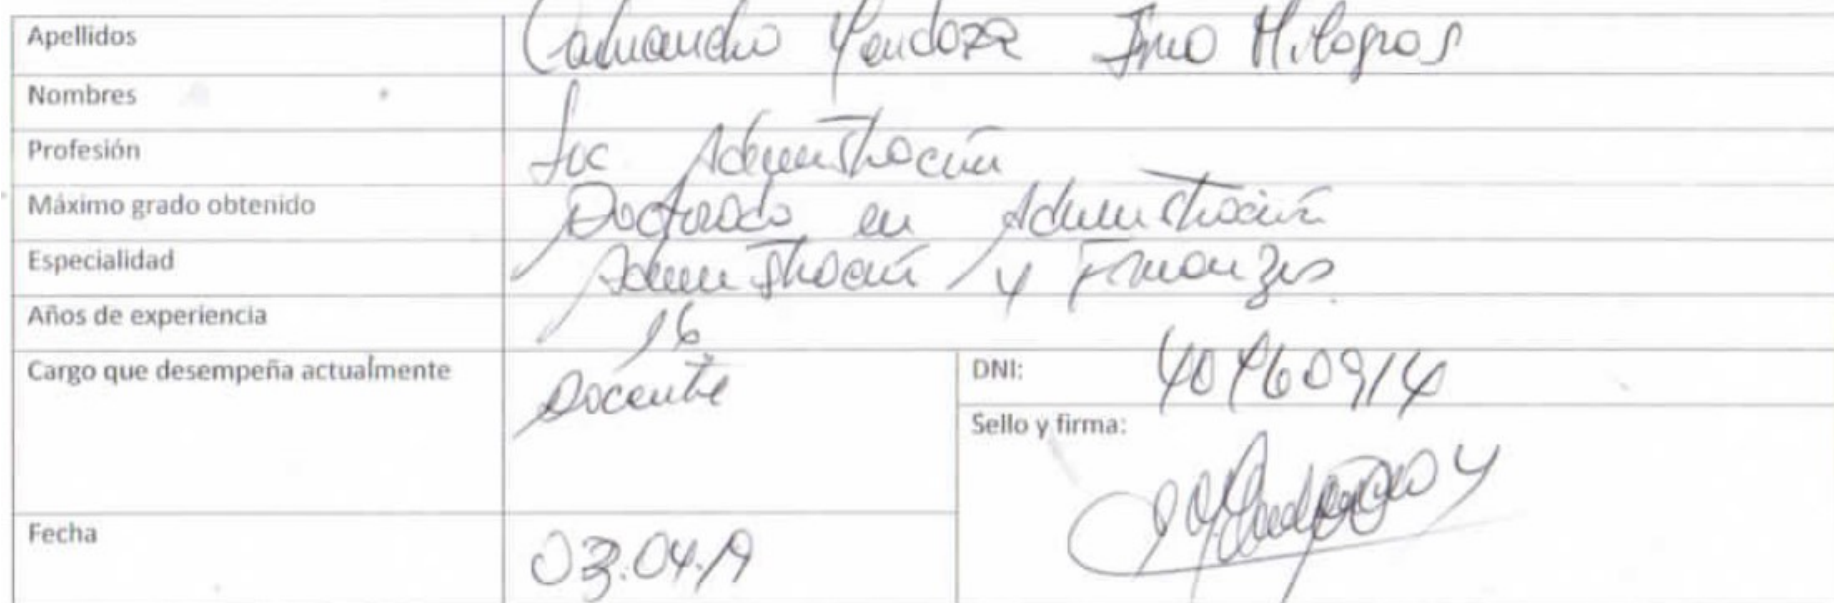 Apellidos Camancho Mendoza Milagros
Nombres
Profesión Lic Administración
Máximo grado obtenido Doctorado en Administración
Especialidad Administración y Finanzas
Años de experiencia 16
Cargo que desempeña actualmente Docente DNI: 40460914
Sello y firma:
Fecha 03.04.19